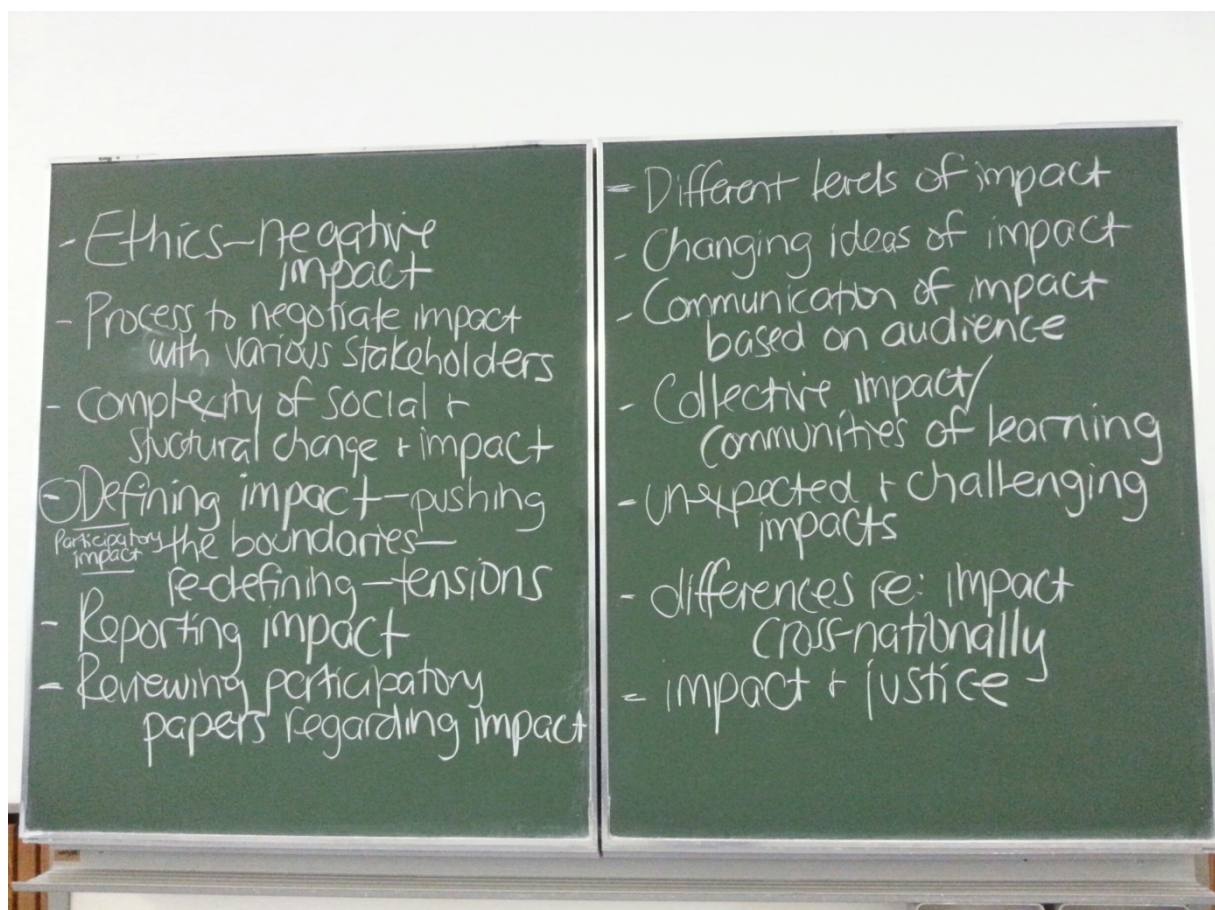 - Ethics-negative
impact
- Process to negotiate impact
with various stakeholders
- complexity of social +
structural change + impact
- Defining impact-pushing
Participatory
impact
the boundaries-
re-defining-tensions
- Reporting impact
- Reviewing participatory
papers regarding impact
- Different levels of impact
- Changing ideas of impact
- Communication of impact
based on audience
- Collective impact/
Communities of learning
- unexpected + challenging
impacts
- differences re: impact
cross-nationally
- impact + justice